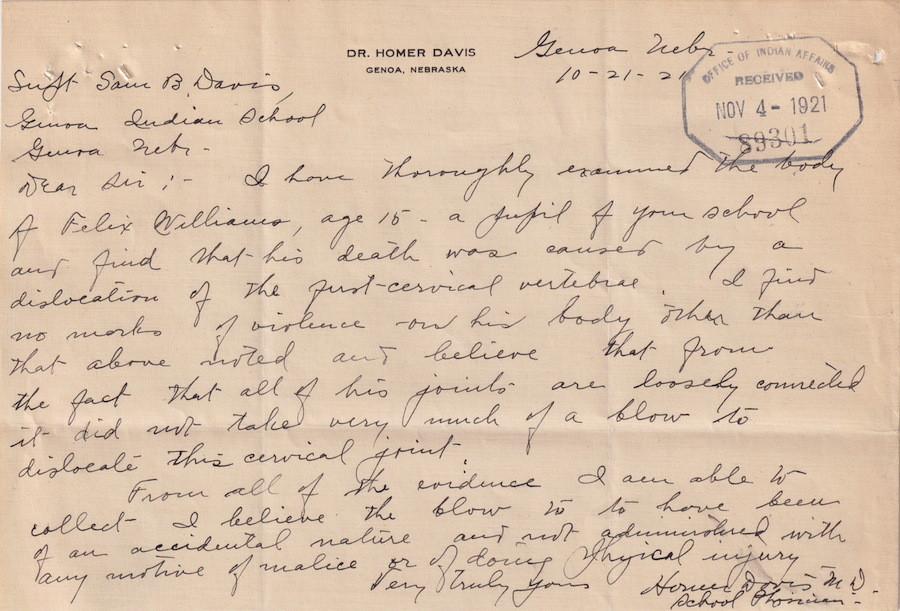 DR. HOMER DAVIS
GENOA, NEBRASKA
Genoa Nebr -
10-21-21
OFFICE OF INDIAN AFFAIRS
RECEIVED
NOV 4 - 1921
89301
Supt Sam B. Davis,
Genoa Indian School
Genoa Nebr -
Dear Sir ; - I have thoroughly examined the body
of Felix Williams, age 15 - a pupil of your school
and find that his death was caused by a
dislocation of the first-cervical vertebrae. I find
no marks of violence on his body other than
that above noted and believe that from
the fact that all of his joints are loosely connected
it did not take very much of a blow to
dislocate this cervical joint.
From all of the evidence I am able to
collect I believe the blow to to have been
of an accidental nature and not administered with
any motive of malice or of doing Physical injury
Very truly yours
Homer Davis M D.
School Physician -